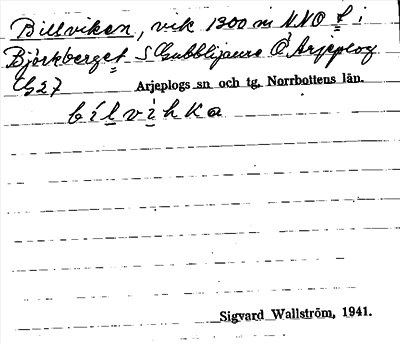 Billviken, vik 1300 m NNO t i
Björkberget S Gubblijaure Ö Arjeplog
G27 Arjeplogs sn och tg, Norrbottens län.
bílvihka
Sigvard Wallström, 1941.